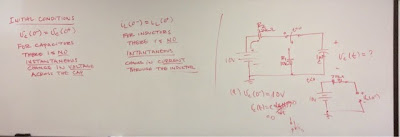 INITIAL CONDITIONS
Vc(0⁻) = Vc(0⁺)
FOR CAPACITORS
THERE IS NO
INSTANTANEOUS
CHANGE IN VOLTAGE
ACROSS THE CAP
iL(0⁻) = iL(0⁺)
FOR INDUCTORS
THERE IS NO
INSTANTANEOUS
CHANGE IN CURRENT
THROUGH THE INDUCTOR
R2
10V
Vc(t) = ?
t<0
Vc(0⁻) = 10V